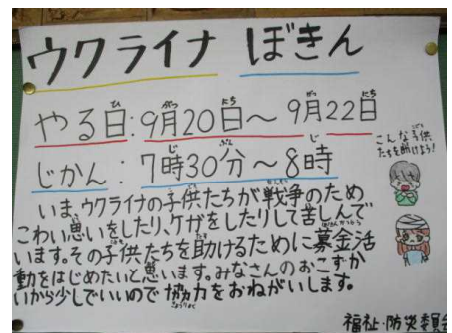 ウクライナ ぼきん
やる日:9月20日〜9月22日
じかん:7時30分〜8時
こんな子供
たちを助けよう!
いま、ウクライナの子供たちが戦争のため
こわい思いをしたり、ケガをしたりして苦しんで
います。その子供たちを助けるために募金活
動をはじめたいと思います。みなさんのおこずか
いから少しでいいので協力をおねがいします。
福祉・防災委員会